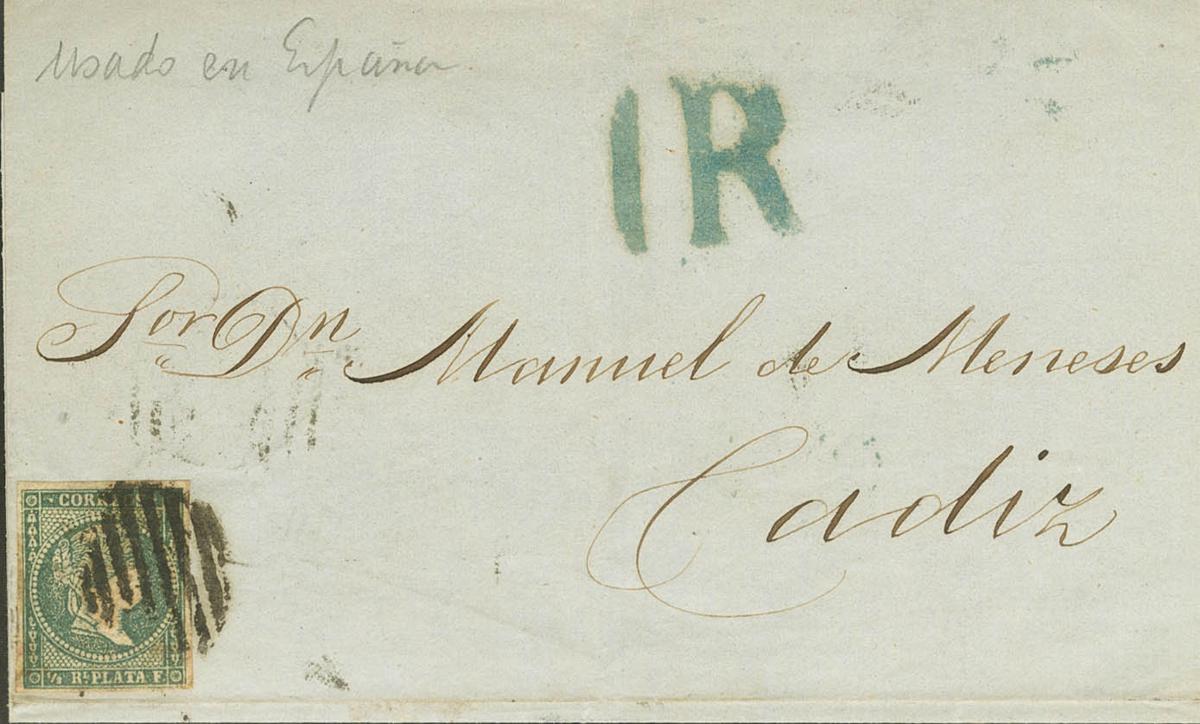 Usado en España
1R
Sor Dn Manuel de Meneses
Cadiz
CORREOS
½ Rl. PLATA F.